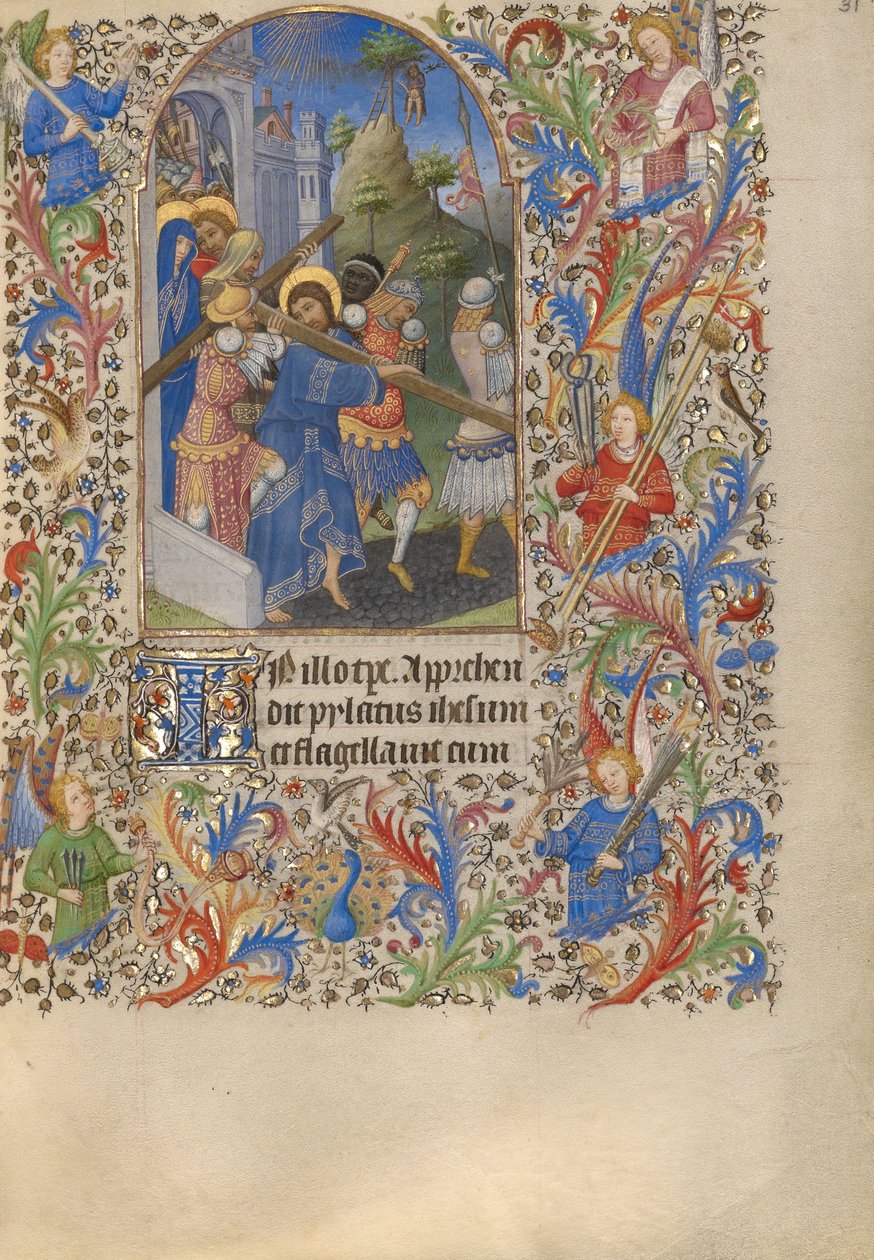 31
IN illo tpe. Apprehen
dit pylatus ihesum
et flagellauit eum